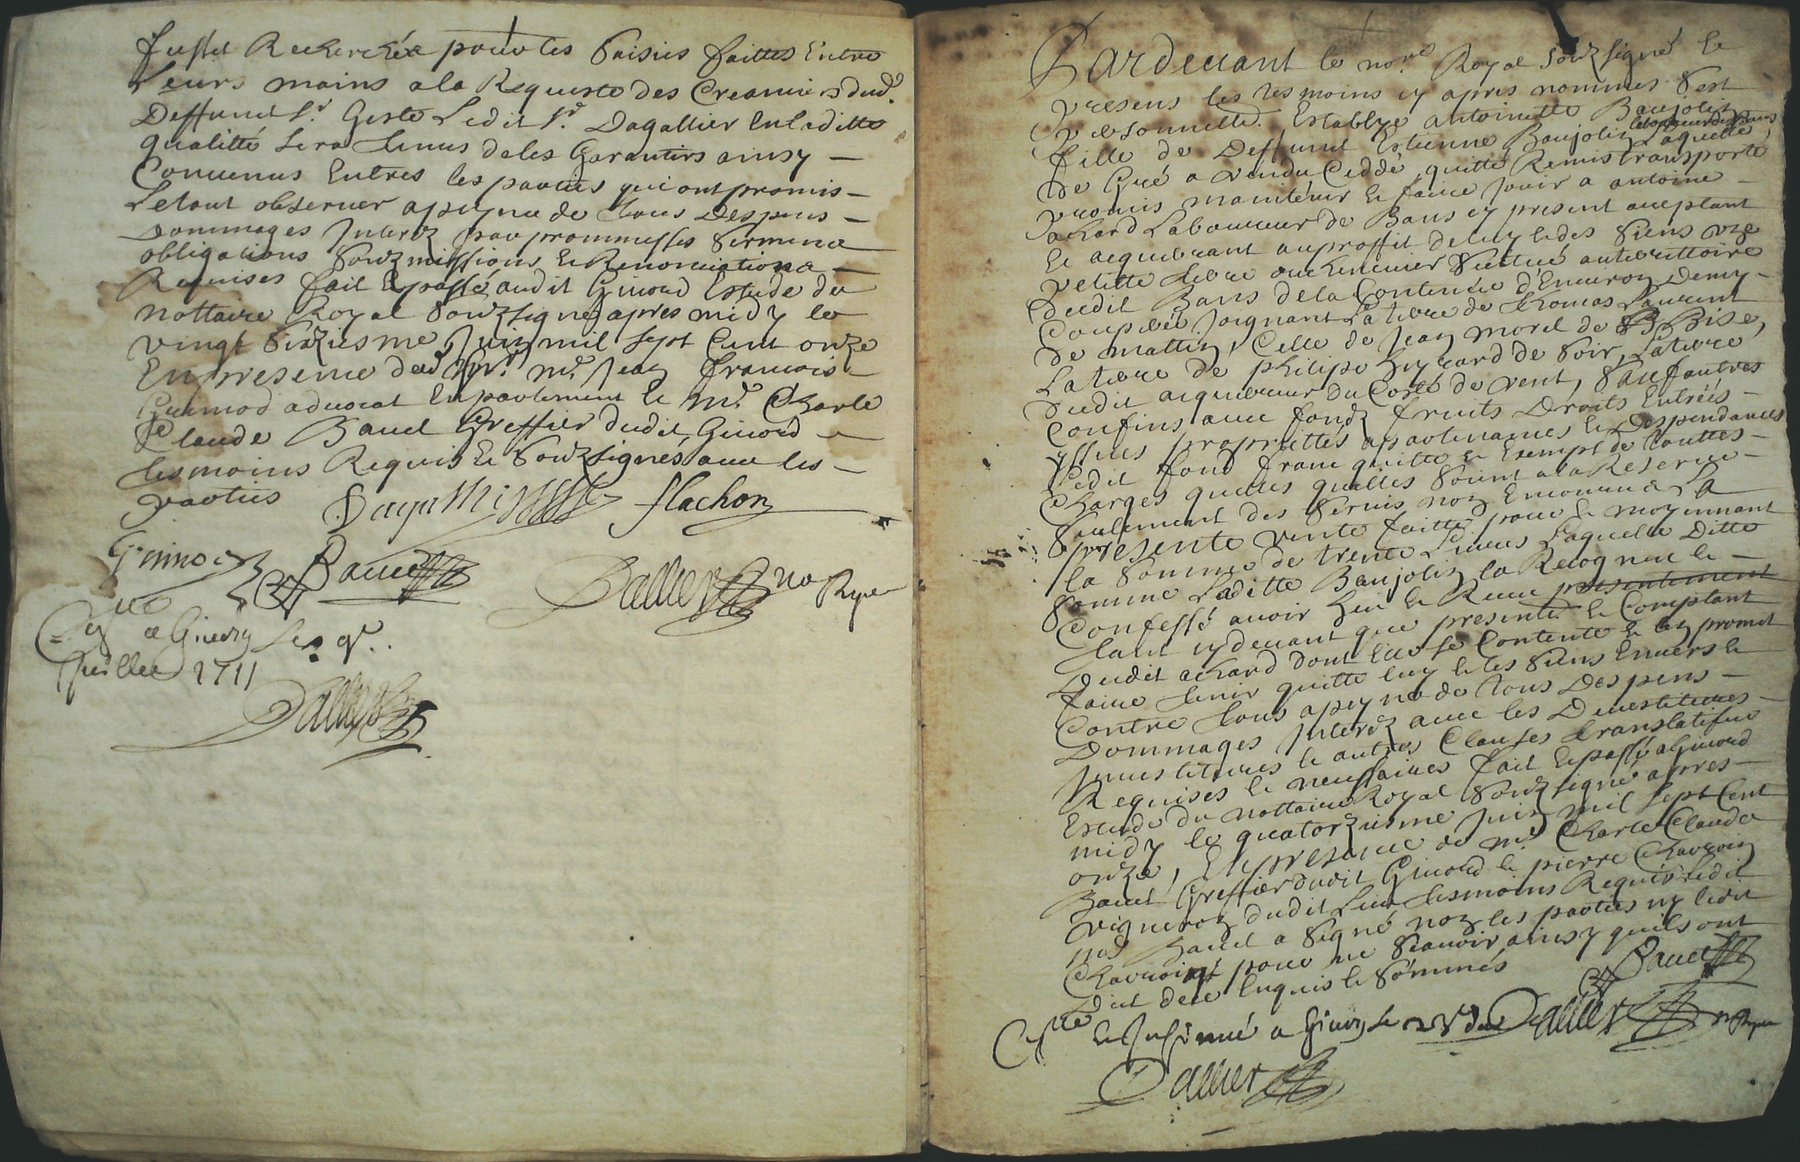 fusset Recherchée pour les Saisies faittes Entre
Leurs mains a la Requeste des Creanciers dud.
Deffunct Sr. Geste Ledit Sr. Dagallier En laditte
qualitté sera tenus de les Garantirs ainsy –
Convenus Entres les parties qui ont promis –
Le tout observer a peyne de tous Despens –
Dommages Interez par prommesses Serment
obligations Souzmissions & Renonciations –
Requises fait & passé audit Givord Estude du
nottaire Royal Souzsigné apres midy le
vingt Sixiesme Juin mil sept Cent onze
En presence de Mr. Jean francois
Grimod advocat En parlement & Mr. Charle
Claude Bauet Greffier dudit Givord –
tesmoins Requis & Souzsignes avec les –
parties
flachon
Grimod
Bauet
Dallier no Royal
Clle a Givors Le 9e..
Juillet 1711
Dallier
Pardevant le nore. Royal Souzsigné &
presens les tesmoins cy apres nommes S'est
personnellet. Establye antoinette Baujolin
fille de Deffunt Estienne Baujolin laboureur de Bans Laquelle
de Gré a vendu Ceddé quitté Remis transporté
promis maintenir & faire Jouir a antoine –
achard Laboureur de Bans cy present acceptant
& acquerant au proffit de luy & des Siens une
petitte terre Scittuée au territtoire
dudit Bans de la Contenue d'Environ Demy –
Coupées Joignant La terre de thomas Laurent
de mattin, Celle de Jean morel de Bise,
La terre de philipe de Soir, La terre
dudit acquereur du Costé de vent, Sauf autres
Confins avec fondz fruits Droits Entrées –
yssues proprietes appartenances & Despendances
Ledit fond franc quitte & Exempt de touttes –
Charges quelles quelles Soient a la Reserve –
Seulement des Servis non Encourus La
presente vente faitte pour & moyennant
la Somme de trente Livres Laquelle Ditte
Somme Laditte Baujolin la Recogneu &
Confessé avoir heu & Receu presentement
tant cy devant que presentet. & Comptant
dudit achard dont Elle se Contente & En promet
faire tenir quitte luy & les Siens Envers &
Contre tous a peyne de tous Despens –
Dommages Interez avec les Devestitures –
Investitures & autres Clauses translatifve
Requises & necessaires fait & passé a Givord
Estude du nottaire Royal Souzsigné apres –
midy le quatorziesme Juin mil Sept Cent
onze, En presence de Mr. Charle Claude
Bauet Greffier dudit Givord & pierre Chavroin
vigneron dudit Lieu tesmoins Requis Ledit
Bauet a Signé non les parties ny ledit
Chavroin pour ne Scavoir ainsy quils ont
Dit de ce Enquis & Sommés
Bauet
Clle & Insinué a Givors le
Dallier no Royal
Dallier